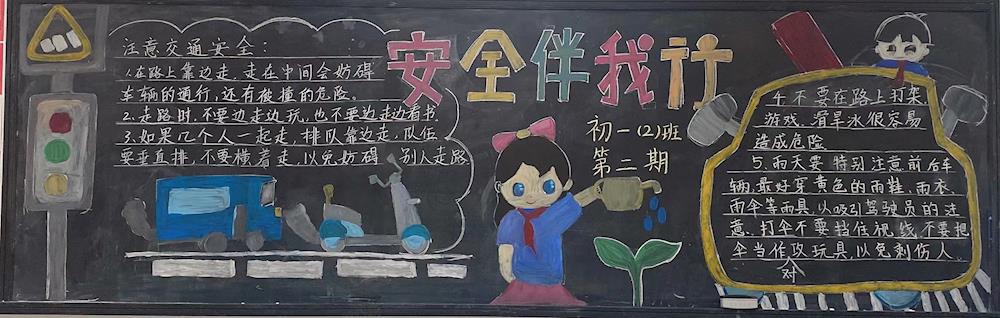 注意交通安全：
1.在路上靠边走，走在中间会妨碍
车辆的通行，还有被撞的危险。
2.走路时，不要边走边玩，也不要边走边看书。
3.如果几个人一起走，排队靠边走，队伍
要垂直排，不要横着走，以免妨碍 别人走路
安全伴我行
初一(2)班
第二期
4.不要在路上打架
游戏，滑旱冰很容易
造成危险
5.雨天要特别注意前后车
辆，最好穿黄色的雨鞋、雨衣、
雨伞等雨具，以吸引驾驶员的注
意。打伞不要挡住视线，不要把
伞当作攻玩具，以免刺伤人
对